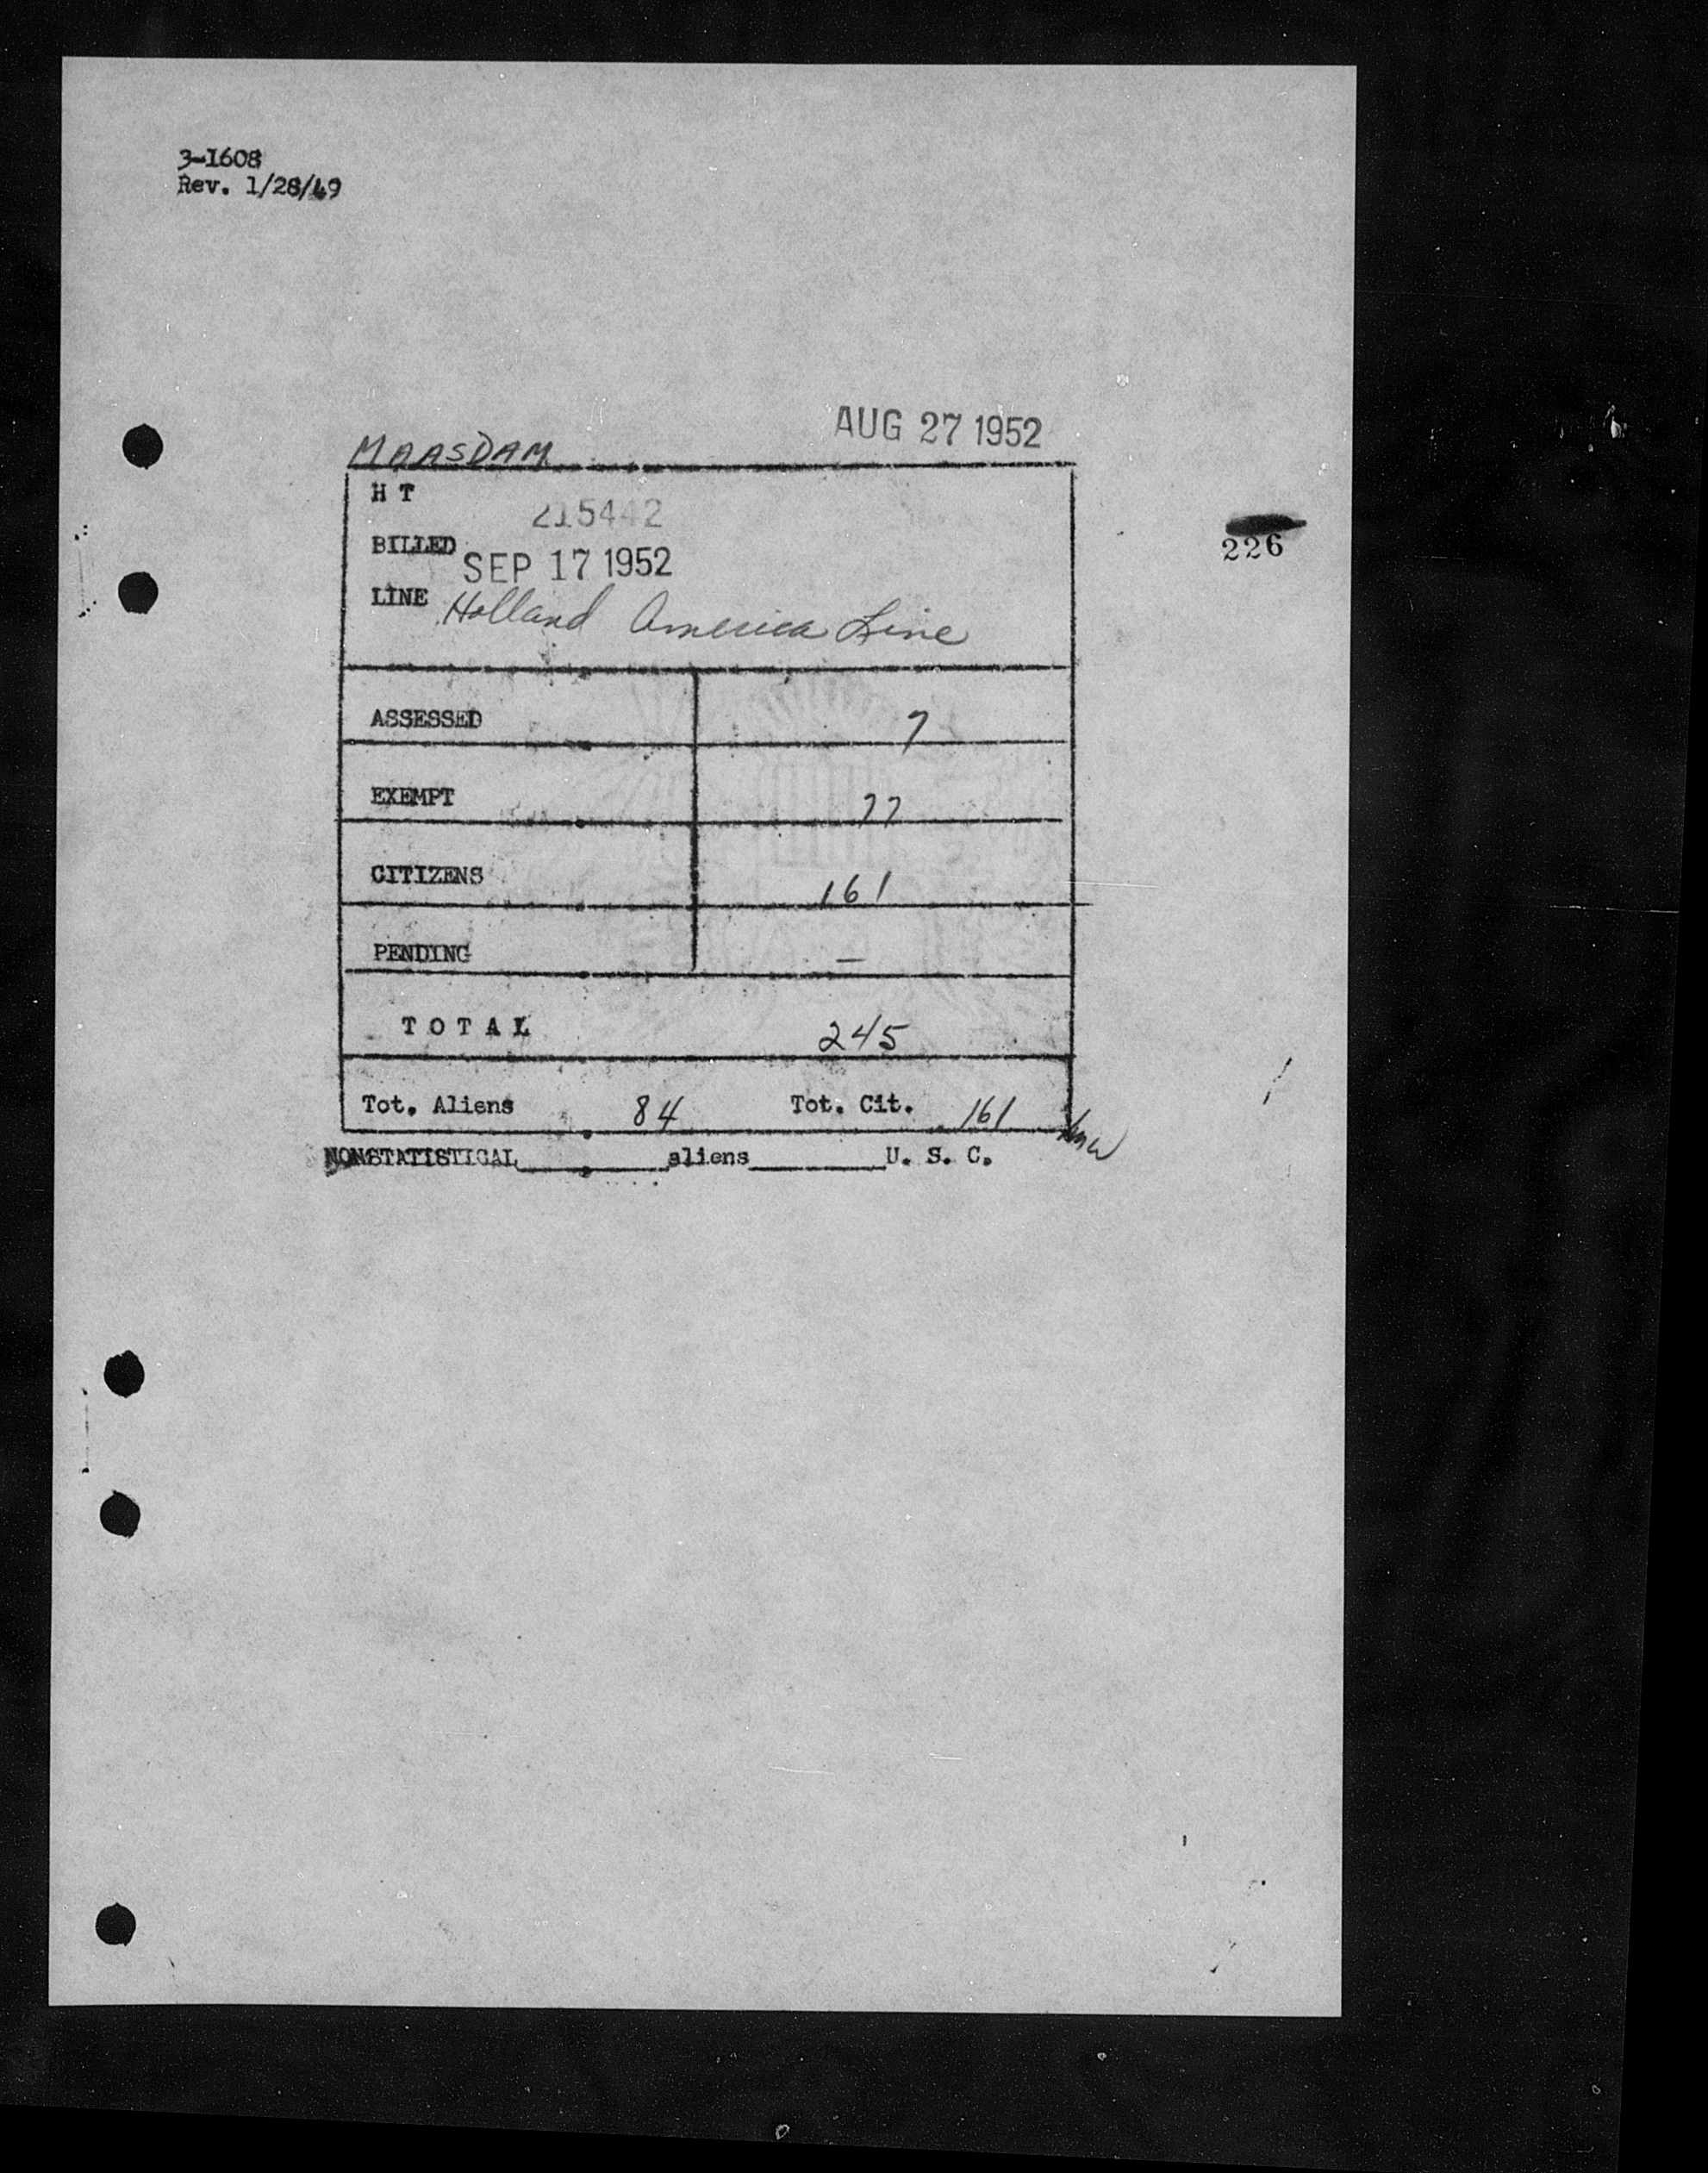 3-1608
Rev. 1/28/49
AUG 27 1952
MAASDAM
H T
215442
BILLED SEP 17 1952
226
LINE Holland America Line
ASSESSED 7
EXEMPT 77
CITIZENS 161
PENDING —
T O T A L 245
Tot. Aliens 84 Tot. Cit. 161
NONSTATISTICAL________aliens________U. S. C.